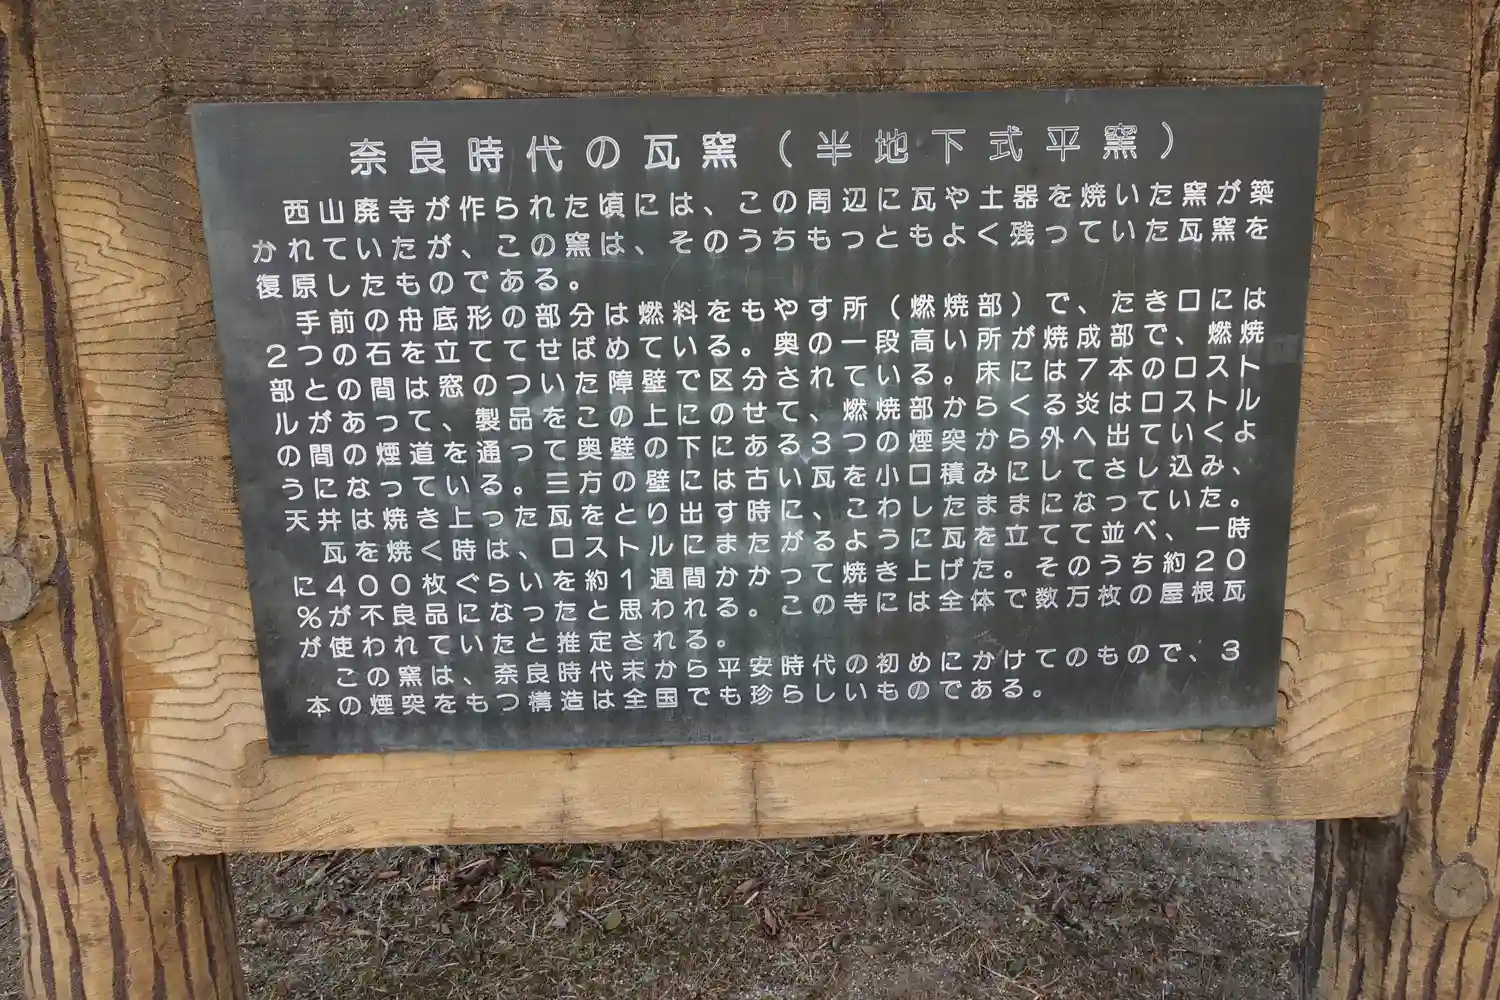 奈良時代の瓦窯（半地下式平窯）
西山廃寺が作られた頃には、この周辺に瓦や土器を焼いた窯が築
かれていたが、この窯は、そのうちもっともよく残っていた瓦窯を
復原したものである。
手前の舟底形の部分は燃料をもやす所（燃焼部）で、たき口には
２つの石を立ててせばめている。奥の一段高い所が焼成部で、燃焼
部との間は窓のついた障壁で区分されている。床には７本のロスト
ルがあって、製品をこの上にのせて、燃焼部からくる炎はロストル
の間の煙道を通って奥壁の下にある３つの煙突から外へ出ていくよ
うになっている。三方の壁には古い瓦を小口積みにしてさし込み、
天井は焼き上った瓦をとり出す時に、こわしたままになっていた。
瓦を焼く時は、ロストルにまたがるように瓦を立てて並べ、一時
に４００枚ぐらいを約１週間かかって焼き上げた。そのうち約２０
％が不良品になったと思われる。この寺には全体で数万枚の屋根瓦
が使われていたと推定される。
この窯は、奈良時代末から平安時代の初めにかけてのもので、３
本の煙突をもつ構造は全国でも珍らしいものである。